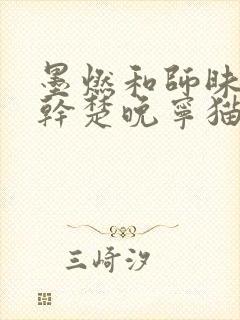 墨燃和師昧
幹楚晚寧猫
三崎汐